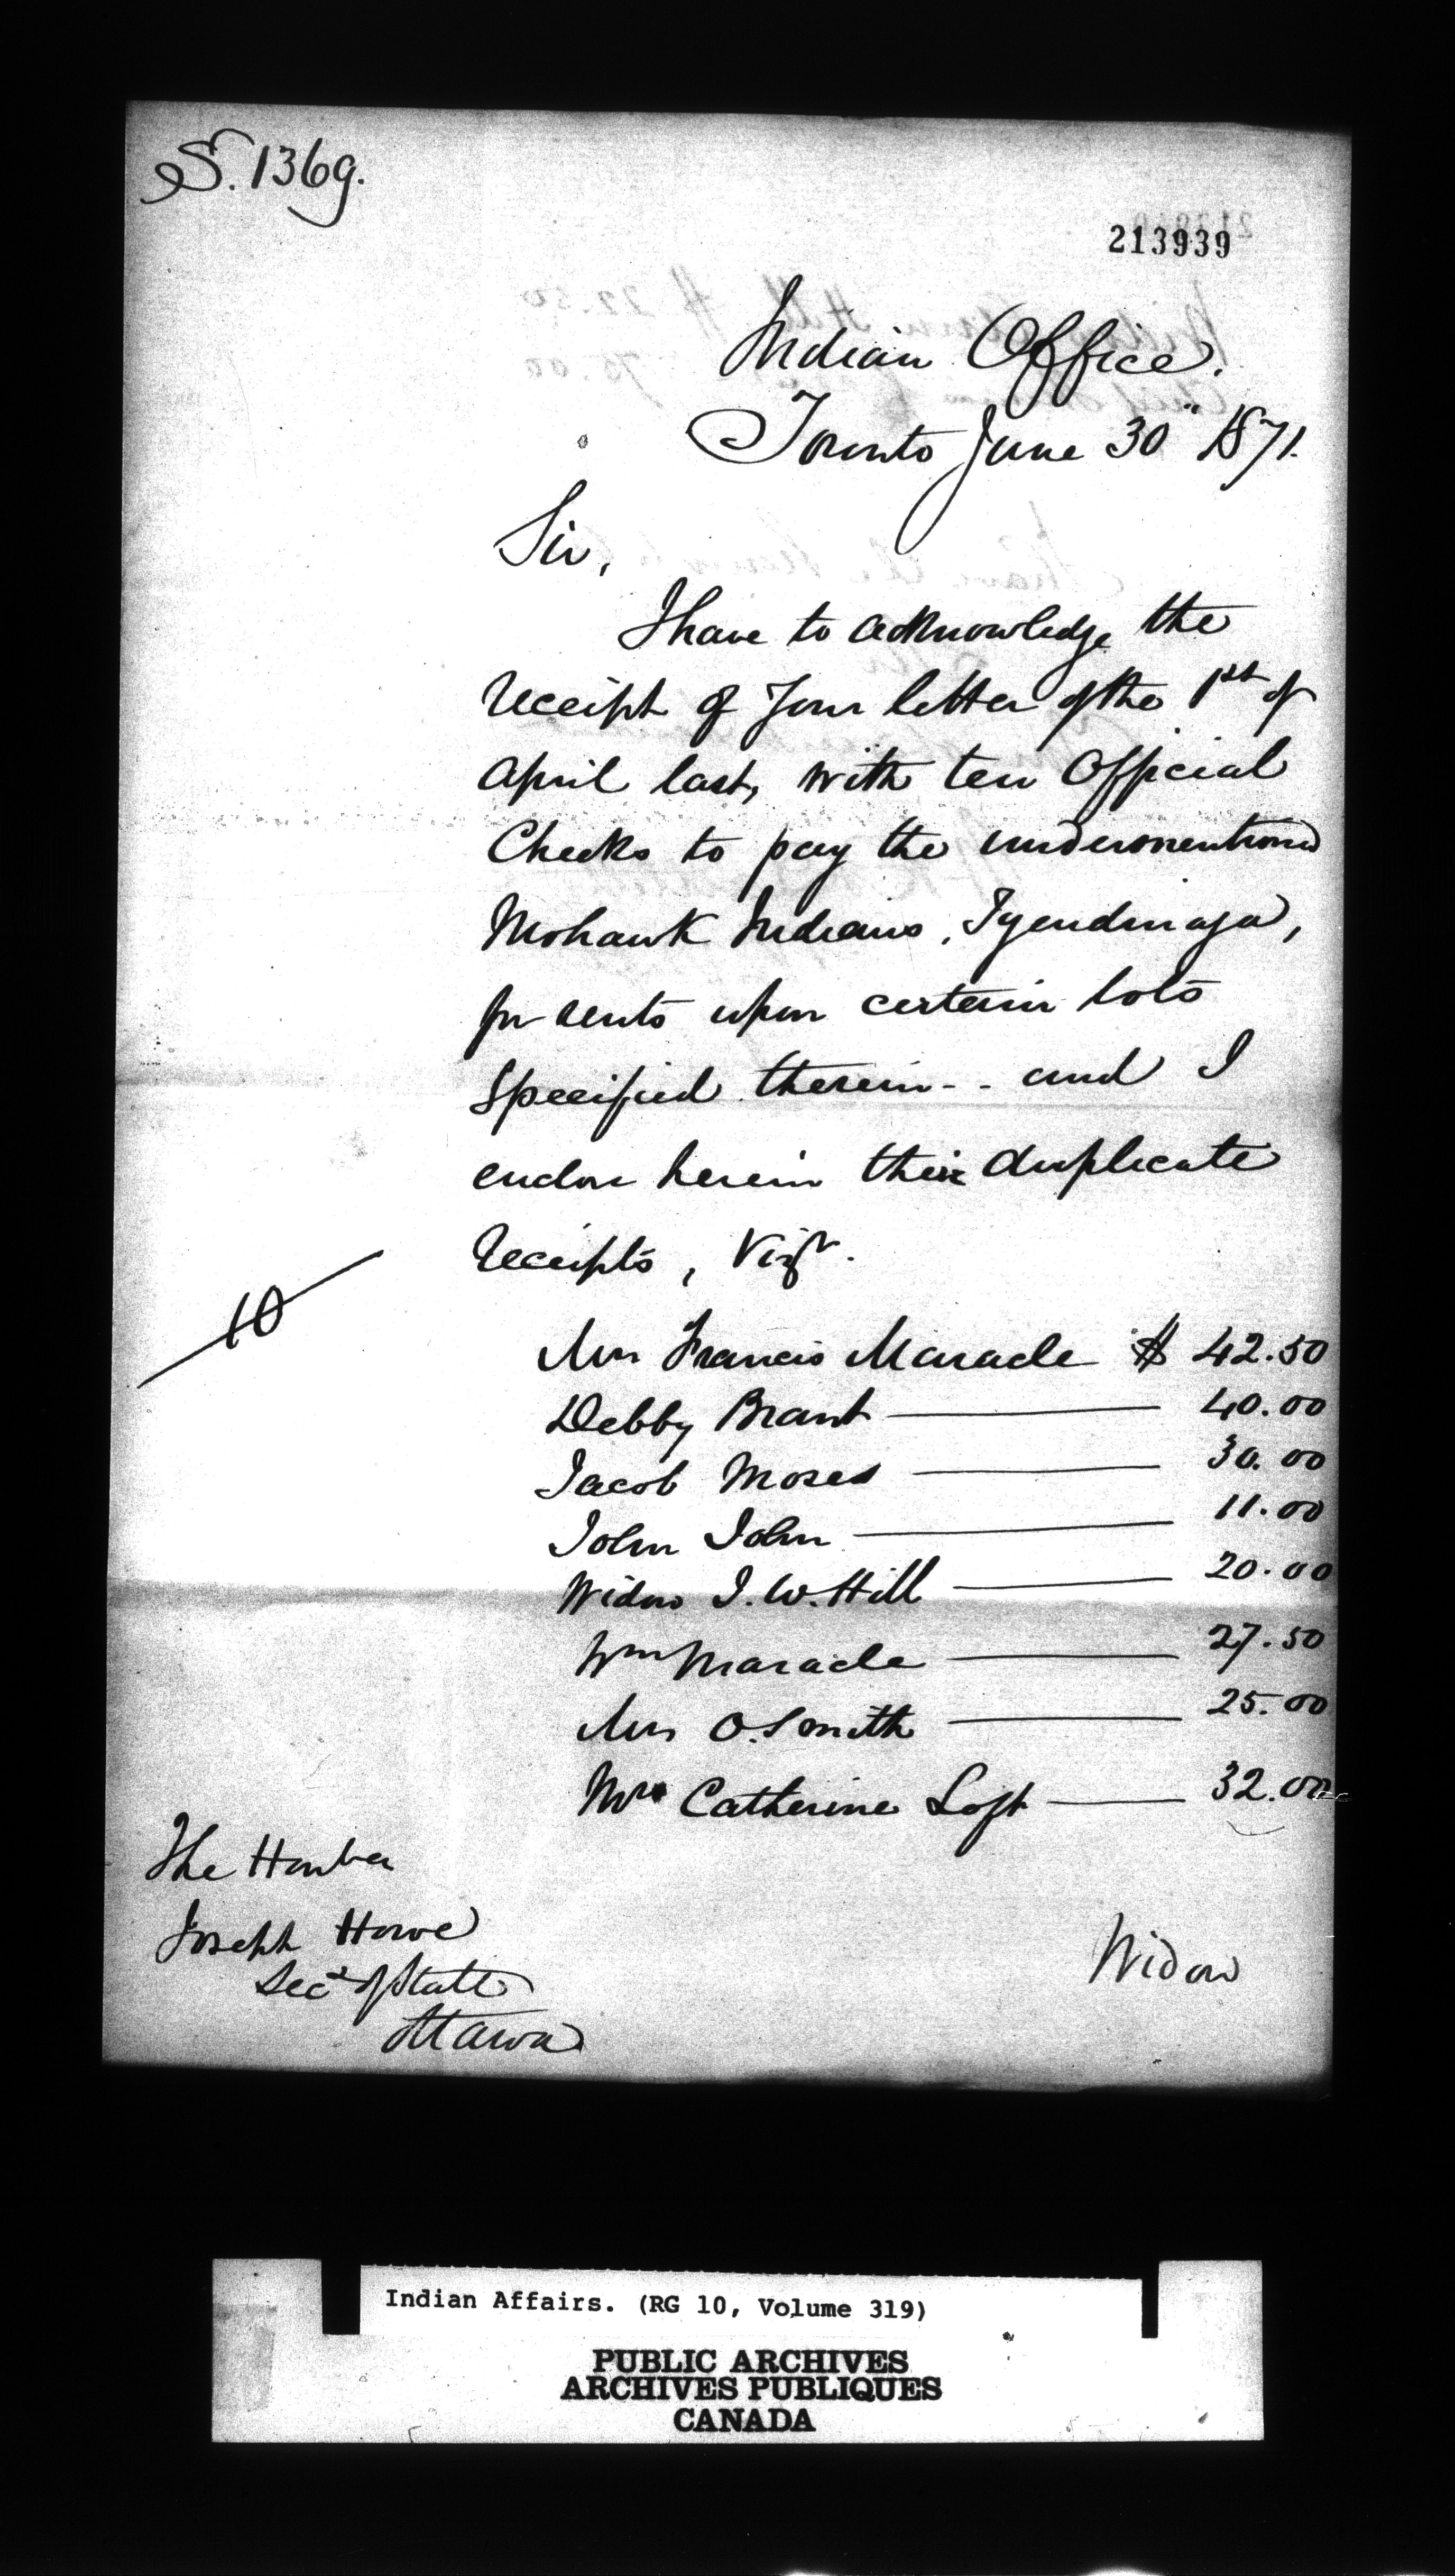 S. 1369.
213939
Indian Office.
Toronto June 30" 1871.
Sir,
I have to acknowledge the
receipt of your letter of the 1st of
April last, with ten Official
Checks to pay the undermentioned
Mohawk Indians, Tyendinaga,
for rents upon certain lots
specified therein - - and I
enclose herein their duplicate
receipts, Vizt.
10
Mrs Francis Maracle $ 42.50
Debby Brant 40.00
Jacob Moses 30.00
John John 11.00
Widow J. W. Hill 20.00
Wm Maracle 27.50
Mrs O. Smith 25.00
Mrs Catherine Loft 32.00
The Honble
Joseph Howe
Secy of State
Ottawa
Widow
Indian Affairs. (RG 10, Volume 319)
PUBLIC ARCHIVES
ARCHIVES PUBLIQUES
CANADA